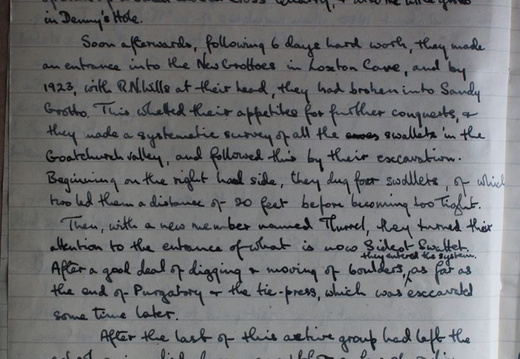 in Denny's Hole.
Soon afterwards, following 6 days hard work, they made
an entrance into the New Grottoes in Loxton Cave, and by
1923, with R.N.Wills at their head, they had broken into Sandy
Grotto. This whetted their appetites for further conquests, &
they made a systematic survey of all the caves swallets in the
Goatchurch valley, and followed this by their excavation.
Beginning on the right hand side, they dug four swallets, of which
two led them a distance of 20 feet before becoming too tight.
Then, with a new member named Thurrel, they turned their
attention to the entrance of what is now Sidcot Swallet.
they entered the system
After a good deal of digging & moving of boulders, as far as
the end of Purgatory & the tie-press, which was excavated
some time later.
After the last of this active group had left the